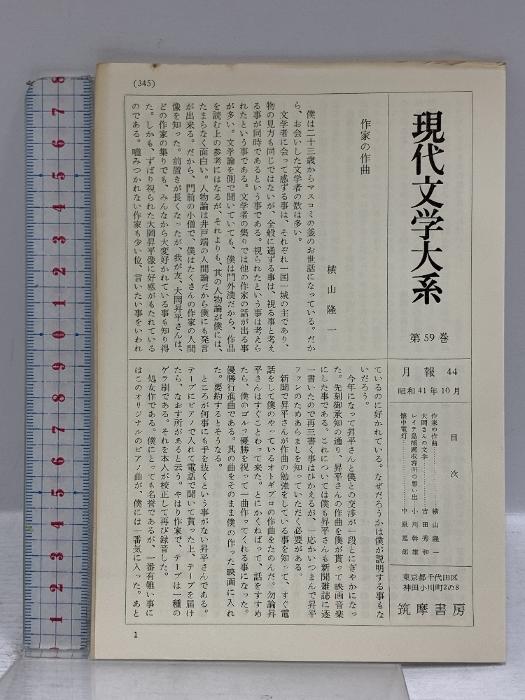 (345)
現代文学大系
第59巻
月報44
昭和41年10月
目次
作家の作曲………横山隆一
大岡さんの文学………吉田秀和
レイテ島俘虜収容所の思い出………小川幹雄
懐中電灯………中原思郎
東京都千代田区
神田小川町2の8
筑摩書房
作家の作曲
横山隆一
僕は二十三歳からマスコミの釜のお世話になっている。だか
ら、お会いした文学者の数は多い。
文学者に会って感ずる事は、それぞれ一国一城の主であり、
物の見方も同じではないが、全般に通ずる事は、視る事と考え
る事が同時であるという事である。視られたという事は考えら
れたという事である。文学者の集りでは他の作家の話が出る事
が多い。文学論を側で聞いていても、僕は門外漢だから、作品
を読む上の参考にはなるが、それよりも、其の人物論が僕には、
たまらなく面白い。人物論は井戸端の人間論だから僕にも発言
が出来る。だから、門前の小僧で、僕はたくさんの作家の人間
像を知った。前置きが長くなったが、我が友、大岡昇平さんは、
どの作家の集りでも、みんなから大変好かれている事も知り得
た。しかも、ずばり視られた大岡昇平像に好感がもたれている
のである。噛みつかれない作家も少い位、言いたい事をいわれ
ているのに好かれている。なぜだろうかは僕が説明する事もな
いだろう。
今年になって昇平さんと僕との交渉が一段とにぎやかになっ
た。先刻御承知の通り、昇平さんの作曲を僕が貰って映画音楽
にした事である。これについては僕も昇平さんも新聞雑誌に逐
一書いたので再三書く事はひかえるが、一応かいつまんで昇平
ファンのためあらましを知っていただく必要がある。
新聞で昇平さんが作曲の勉強をしている事を知って、すぐ電
話をして僕のやっているオトギプロの作曲をたのんだ。勿論昇
平さんはすぐことわって来た。とにかくねばって、話をすすめ
たら、僕のゴルフ優勝を祝って一曲作ってくれる事になった。
優勝行進曲である。其の曲をそのまま僕の作った映画に入れ
た。要約するとそうなる。
ところが何事にも手を抜くという事がない昇平さんである。
テープにピアノで入れて電話で聞いて貰った上、テープを届け
たら、なおす所があると云う。やはり作家で、テープは一種の
ゲラ刷である。それを本人が校正して再び録音した。
処女作である。僕にとっても名誉であるが、一番有難い事に
はこのオリジナルのピアノ曲が、僕には一番気に入った。あと
1